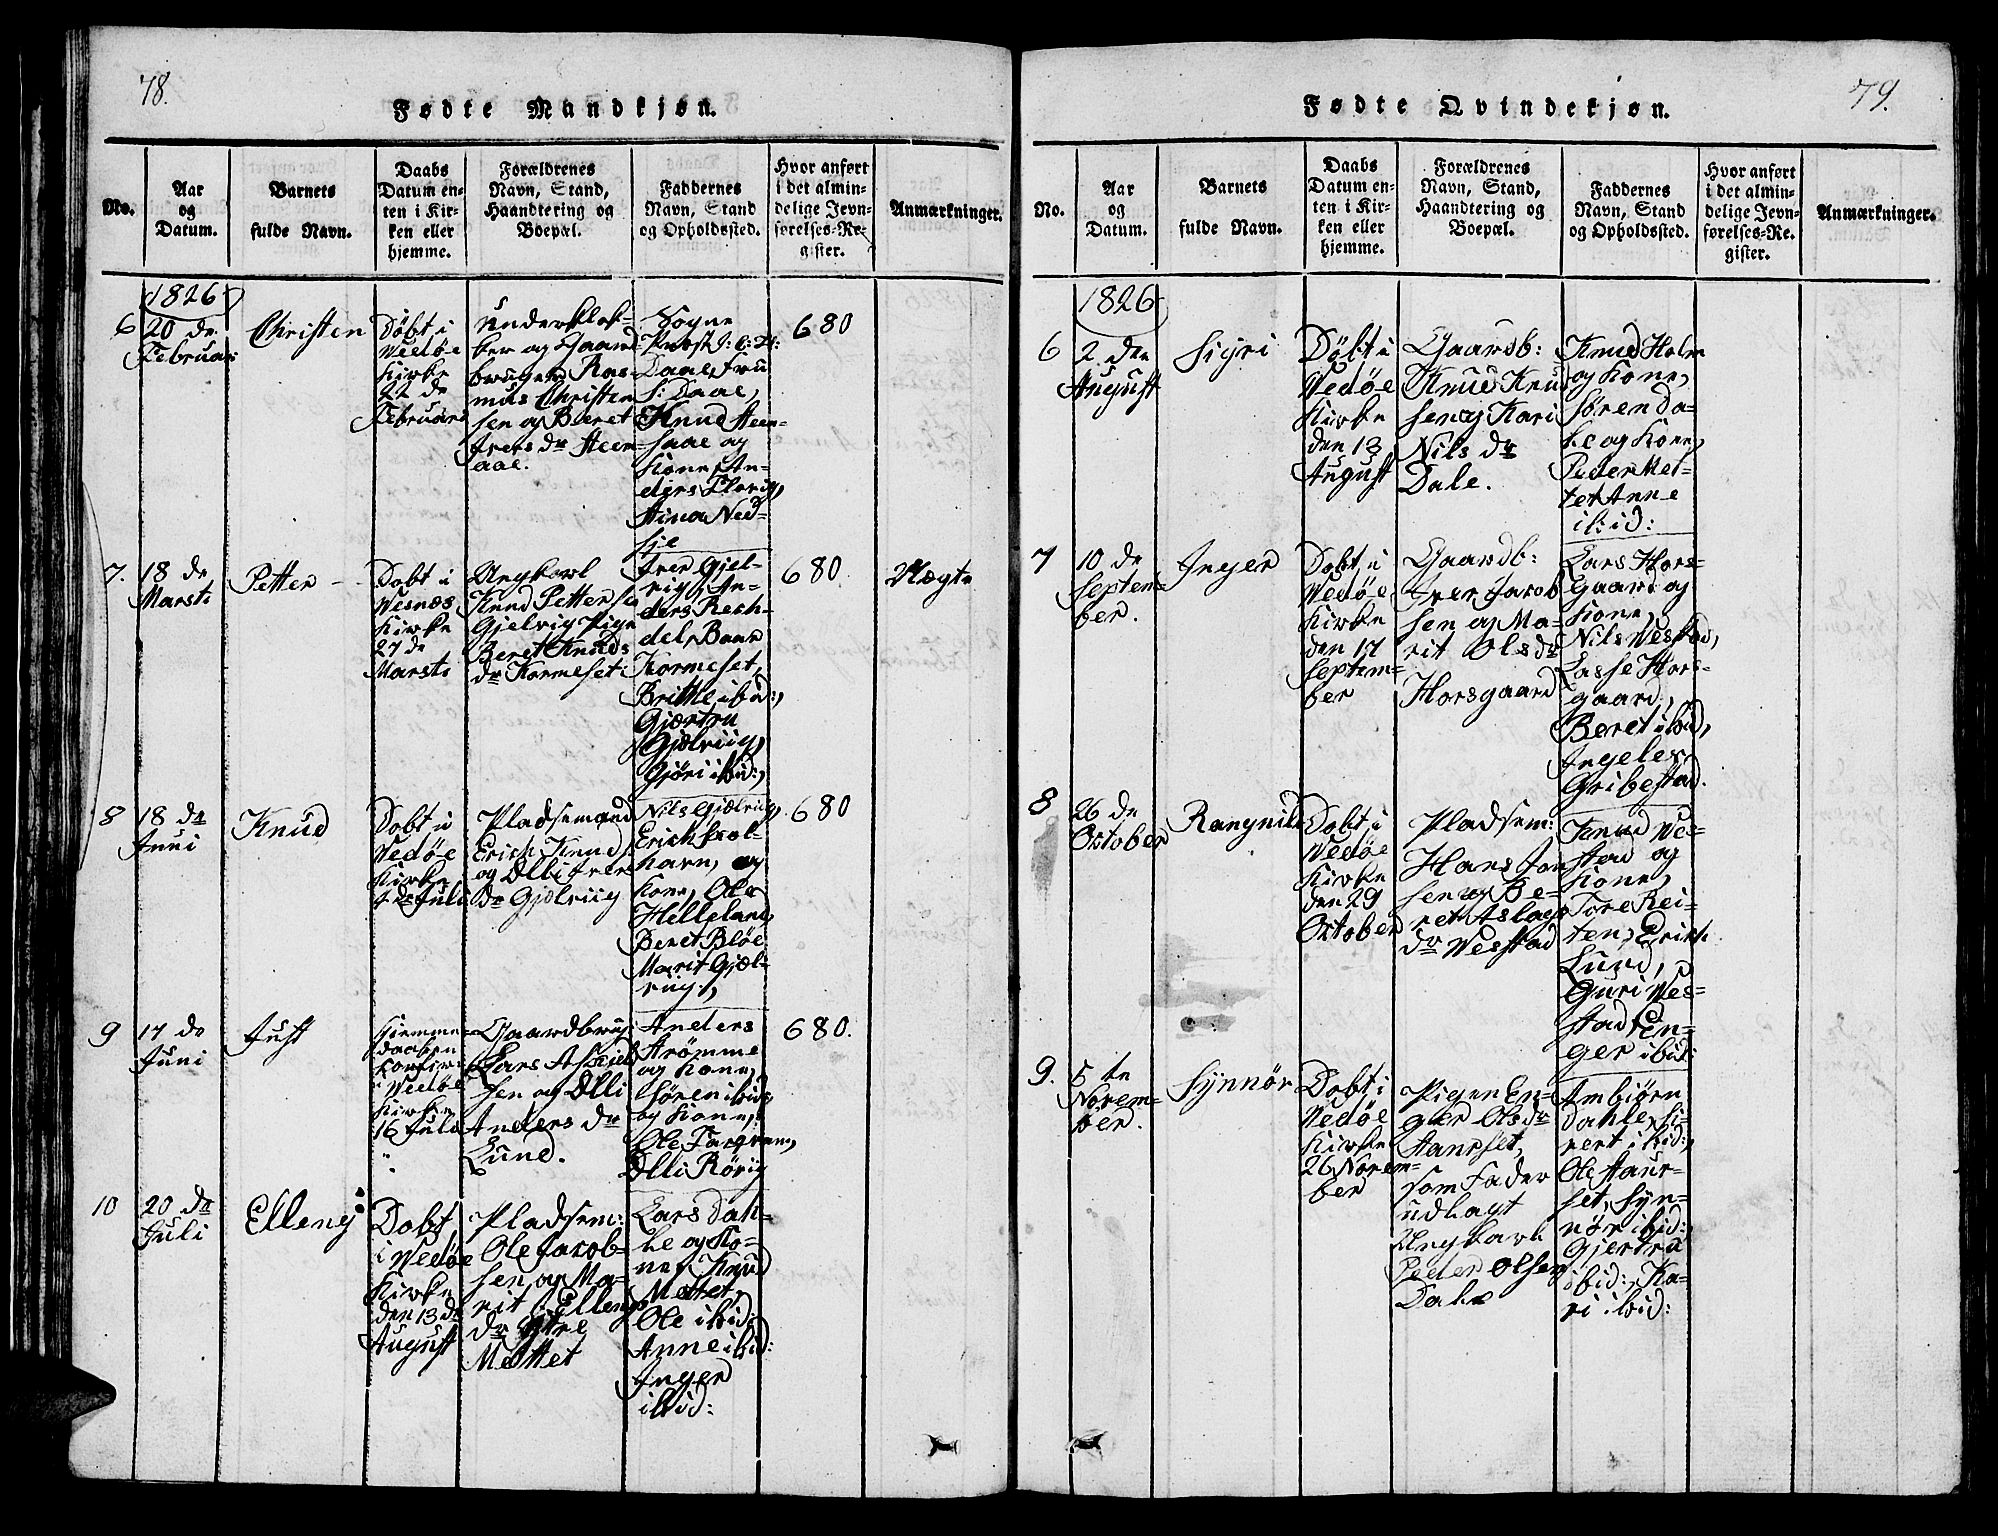 78.
Fødte Mandkjøn.
No.
Aar
og
Datum.
Barnets
fulde Navn.
Daabs
Datum en-
ten i Kir-
ken eller
hjemme.
Forældrenes
Navn, Stand,
Haandtering og
Boepæl.
Faddernes
Navn, Stand
og Opholdssted.
Hvor anført
i det almin-
delige Jevn-
førelses-Re-
gister.
Anmærkninger.
1826
6
20 de
Februar
Christen
Döbt i
Wedöe
Kirke
22 de
Februari
Underklok-
ker og Gaard
bruger Ras-
mus Christen
sen og Beret
Ivers dr Steen
aae.
Sogne
Daae, Fru
S: Daae,
Knud Steen-
saae og
Kone, An-
ders Flovig,
Stina Ned-
sje
680
7.
18 de
Marsti
Petter
Dobt i
Wesnæs
Kirke
27 de
Marsti
Ungkarl
Knud Petterse
Gjelvig Pige
Beret Knuds
dr Kormeset
Iver Gjel-
vig, An-
ders Rech-
del, Baar
Kormeset,
Britthe ibid:,
Gjørtru
Gjølviig,
Gjöri ibid:,
680.
Uægte
8
18 de
Juni
Knud
Dobt i
Wedöe
Kirke
2 de Juli
Pladsemand
Erich Knud
og Olli Iver
Dr Gjølviig
Nils Gjølviig,
Erich Krol-
havn, og
Kone, Ole
Helleland,
Beret Blöe
Marit Gjøl-
viig,
680
9
17 de
Juni
Just
Hjemme-
daaben
i Wedöe
Kirke
16 Juli
Gaardbrug:
Lars Aslaks
sen og Olli
Anders dr
Lund.
Anders
Strömme
og Kone,
Sören ibid
og Kone,
Ole Torgreen,
Olli Rörvig
680.
10
20 de
Juli
Elleng
Dobt
i Wedöe
Kirke
den 13 de
August
Pladsem:
Ole Jacob-
sen og Ma-
rit Ellengs
dr Ytre
Mettet
Lars Dah-
le og Ko-
ne, Knud
Mettet,
Ole ibid:
Anne ibid:
Inger
ibid:
79.
Fødte Qvindekjøn.
No.
Aar
og
Datum.
Barnets
fulde Navn.
Daabs
Datum en-
ten i Kir-
ken eller
hjemme.
Forældrenes
Navn, Stand,
Haandtering og
Boepæl.
Faddernes
Navn, Stand
og Opholdssted.
Hvor anført
i det almin-
delige Jevn-
førelses-Re-
gister.
Anmærkninger.
1826
6
2 den
August
Sigri
Döbt i
Wedöe
Kirke
den 13
August
Gaardb:
Knud Knud
sen og Kari
Nils dr
Dale.
Knud Holm
og Kone,
Sören Da-
le og Kone,
Peder Met-
tet Anne
ibid:
7
10 de
Septem-
ber.
Inger
Dobt i
Wedöe
Kirke
den 17
Septem-
ber
Gaardb:
Iver Jacob
sen og Ma-
rit Ols dr
Horsgaard
Lars Hors-
gaard og
Kone,
Nils Westad,
Lasse Hors-
gaard,
Beret ibid,
Ingeler
Gribestad.
8
26 de
October
Rangnild
Dobt i
Wedöe
Kirke
den 29
October
Pladsem:
Hans Jon
sen og Be-
ret Aslags
dr Westad
Knud Wes-
stad og
Kone,
Tore Rei-
ten, Erich
Lund,
Guri Wes-
stad, En-
ger ibid:
9.
5 te
Novem-
ber.
Synnör
Dobt i
Wedöe
Kirke
26 Novem-
ber
Pigen En-
ger Ols dr
som Fader
udlagt
Ungkarl
Peder Olsen
Dahle
Ambiörn
Dahle, Si-
vert ibid:,
Ole Staur-
set, Syn-
nör ibid:
Gjertru
ibid:, Ka-
ri ibid: